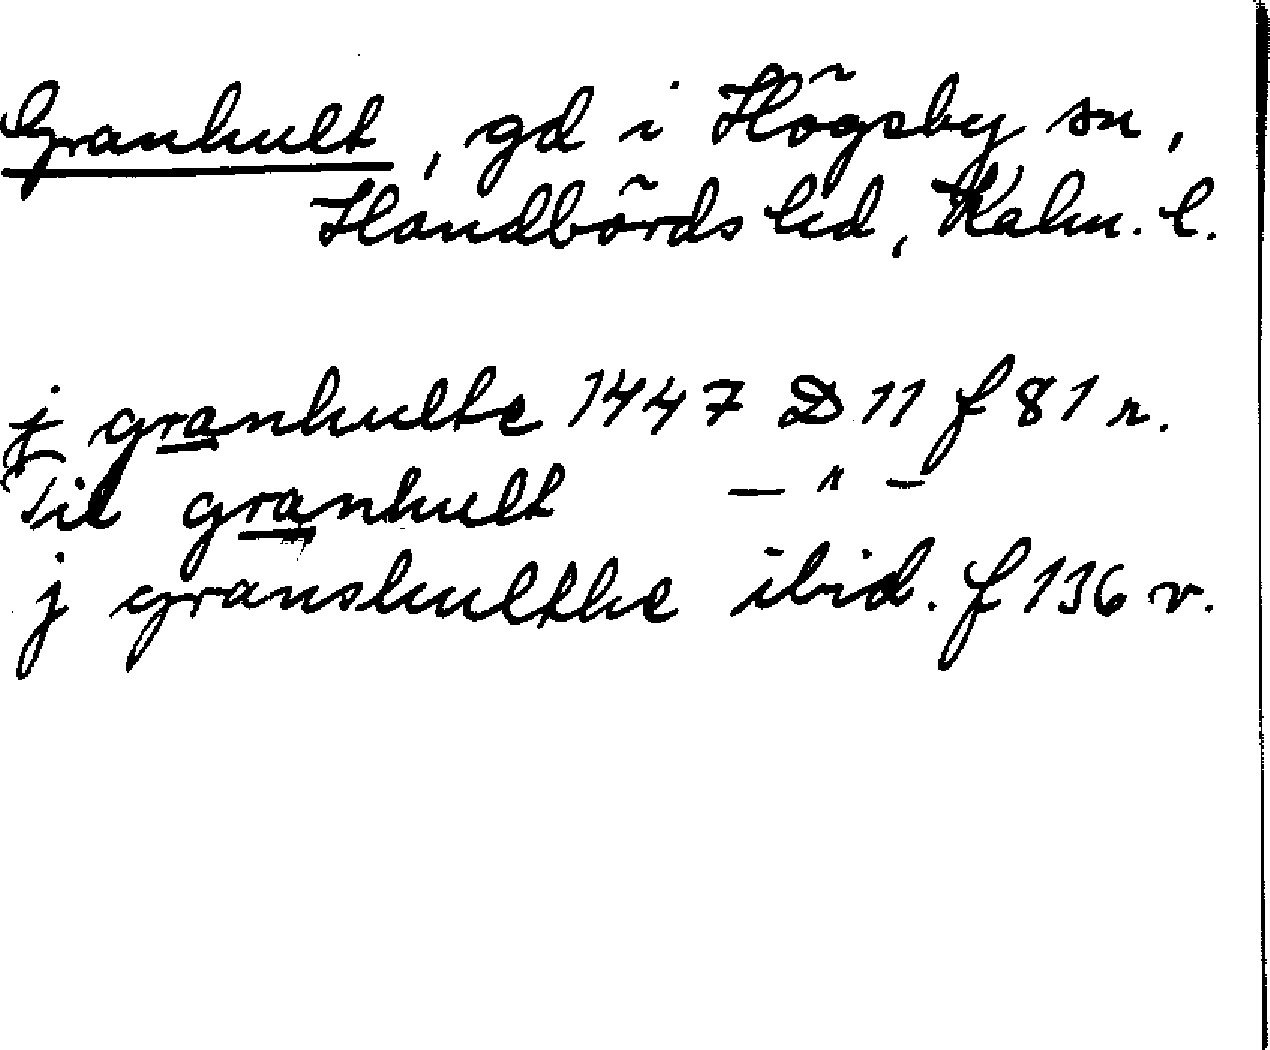 Granhult, gd i Högsby sn,
Handbörds hd, Kalm. l.
j granhulte 1447 D 11 f 81 r.
Til granhult —"—
j granshulthe ibid. f 136 v.